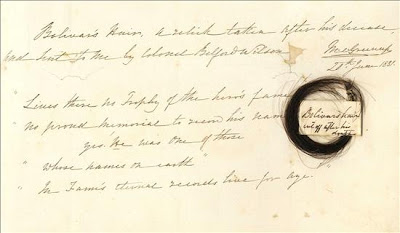 Bolivar's Hair, a relick taken after his decease,
and sent to me by Colonel Belford Wilson
27th June 1831.
Lives there no Trophy of the hero's fame
no proud memorial to record his name
yes. He was one of those
whose names on earth
In Fame's eternal records live for aye.
Bolivar's hair
cut off after his
death